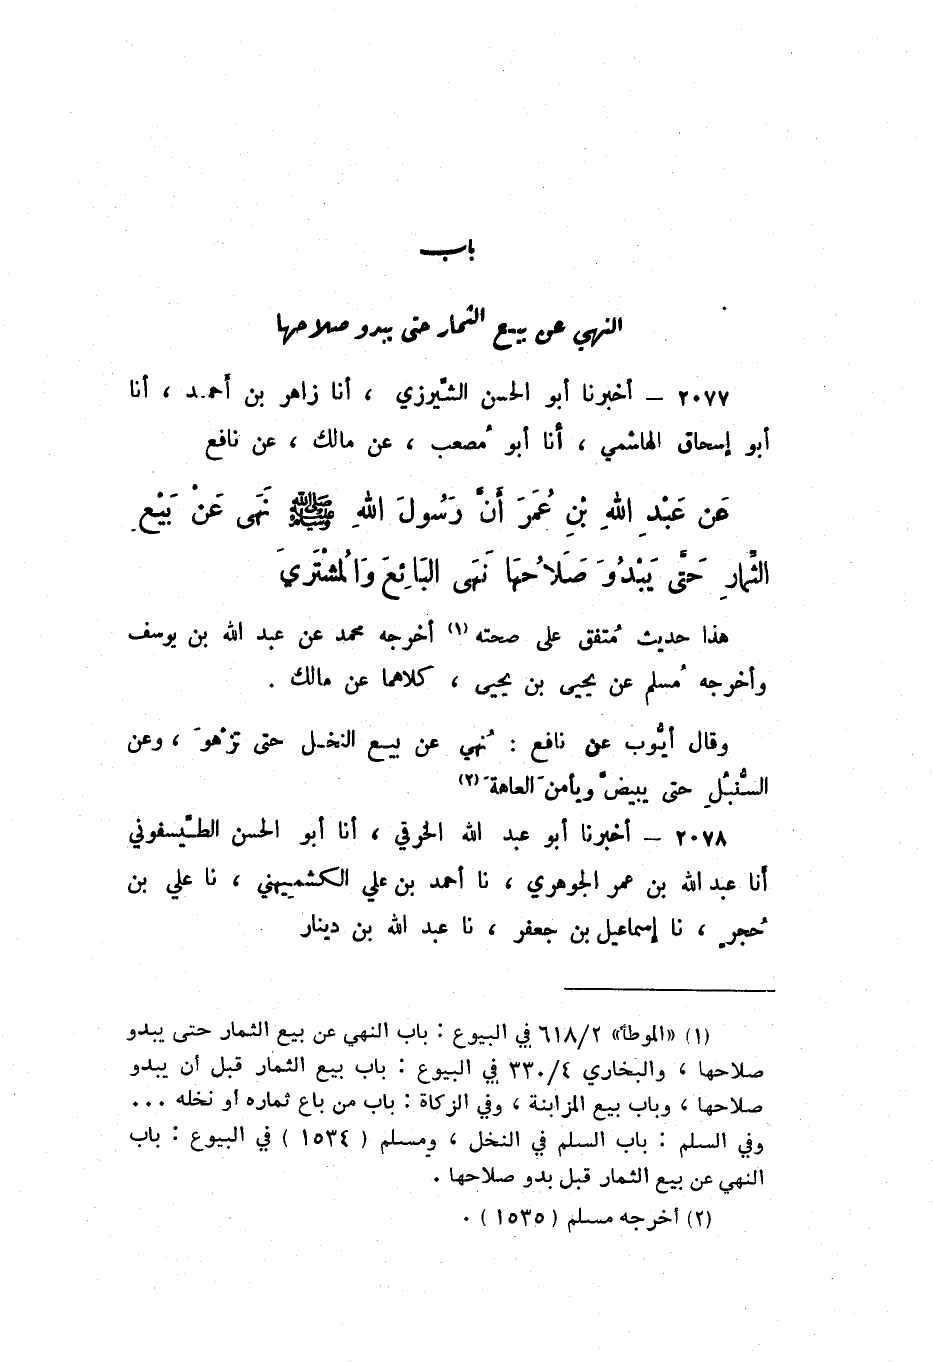 باب
النهي عن بيع الثمار حتى يبدو صلاحها
٢٠٧٧ – أخبرنا أبو الحسن الشّيرزي ، أنا زاهر بن أحمد ، أنا
أبو إسحاق الهاشمي ، أنا أبو مُصعب ، عن مالك ، عن نافع
عَن عَبْدِ اللهِ بْنِ عُمَرَ أَنَّ رَسُولَ اللهِ ﷺ نَهَى عَنْ بَيْعِ
الثِّمارِ حَتَّى يَبْدُوَ صَلَاحُهَا نَهَى البَائِعَ وَالمُشْتَرِيَ
هذا حديث مُتفق على صحته (١) أخرجه محمد عن عبد الله بن يوسف
وأخرجه مُسلم عن يحيى بن يحيى ، كلاهما عن مالك .
وقال أيُّوب عن نافع : نُهي عن بيع النخل حتى تزْهوَ ، وعن
السُّنبُلِ حتى يبيضَّ ويأمنَ العاهةَ (٢)
٢٠٧٨ – أخبرنا أبو عبد الله الخرقي ، أنا أبو الحسن الطَّيسفوني
أنا عبد الله بن عمر الجوهري ، نا أحمد بن علي الكشميهني ، نا علي بن
حُجرٍ ، نا إسماعيل بن جعفر ، نا عبد الله بن دينار
(١) «الموطأ» ٦١٨/٢ في البيوع : باب النهي عن بيع الثمار حتى يبدو
صلاحها ، والبخاري ٣٣٠/٤ في البيوع : باب بيع الثمار قبل أن يبدو
صلاحها ، وباب بيع المزابنة ، وفي الزكاة : باب من باع ثماره أو نخله ...
وفي السلم : باب السلم في النخل ، ومسلم ( ١٥٣٤ ) في البيوع : باب
النهي عن بيع الثمار قبل بدو صلاحها .
(٢) أخرجه مسلم ( ١٥٣٥ ) .